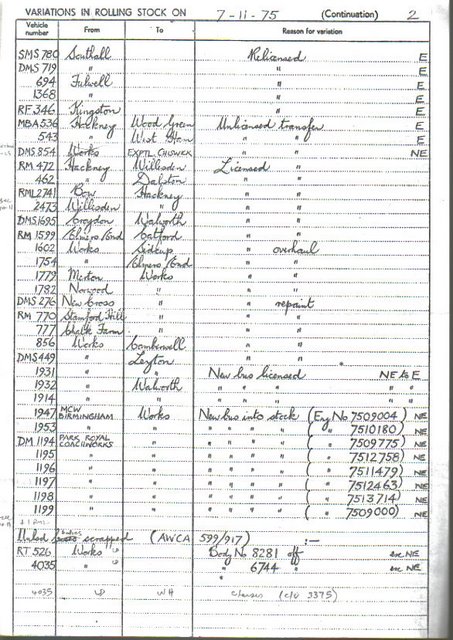 VARIATIONS IN ROLLING STOCK ON 7-11-75 (Continuation) 2
Vehicle number From To Reason for variation
SMS 780 Southall Relicensed E
DMS 719 " " E
694 Fulwell " E
1368 " " E
RF 346 Kingston " E
MBA 536 Hackney Wood Green Unlicensed transfer E
543 " West Ham " " E
DMS 854 Works EXPTL CHISWICK " " NE
RM 472 Hackney Willesden Licensed "
462 " Dalston " "
RML 2741 Bow Hackney " "
2473 Willesden " " "
DMS 1695 Croydon Walworth " "
RM 1599 Elmers/End Catford " "
1602 Works Sidcup " overhaul
1754 " Elmers/End " "
1779 Merton Works " "
1782 Norwood " " "
DMS 276 New Cross " " repaint
RM 770 Stamford Hill " " "
777 Chalk Farm " " "
856 Works Camberwell " "
DMS 449 " Leyton " "
1931 " " New bus licensed NE to E
1932 " Walworth " " " " " "
1914 " " " " " " " "
1947 MCW BIRMINGHAM Works New bus into stock (Eng No 7509004) NE
1953 " " " " " " ( " 7510180) NE
DM 1194 PARK ROYAL COACHWORKS " " " " " ( " 7509775) NE
1195 " " " " " " ( " 7512758) NE
1196 " " " " " " ( " 7511479) NE
1197 " " " " " " ( " 7512463) NE
1198 " " " " " " ( " 7513714) NE
1199 " " " " " " ( " 7509000) NE
bodies scrapped (AWCA 599/917) :—
RT 526 Works Body No 8281 off NE
4035 " " 6744 " NE
4035 WH